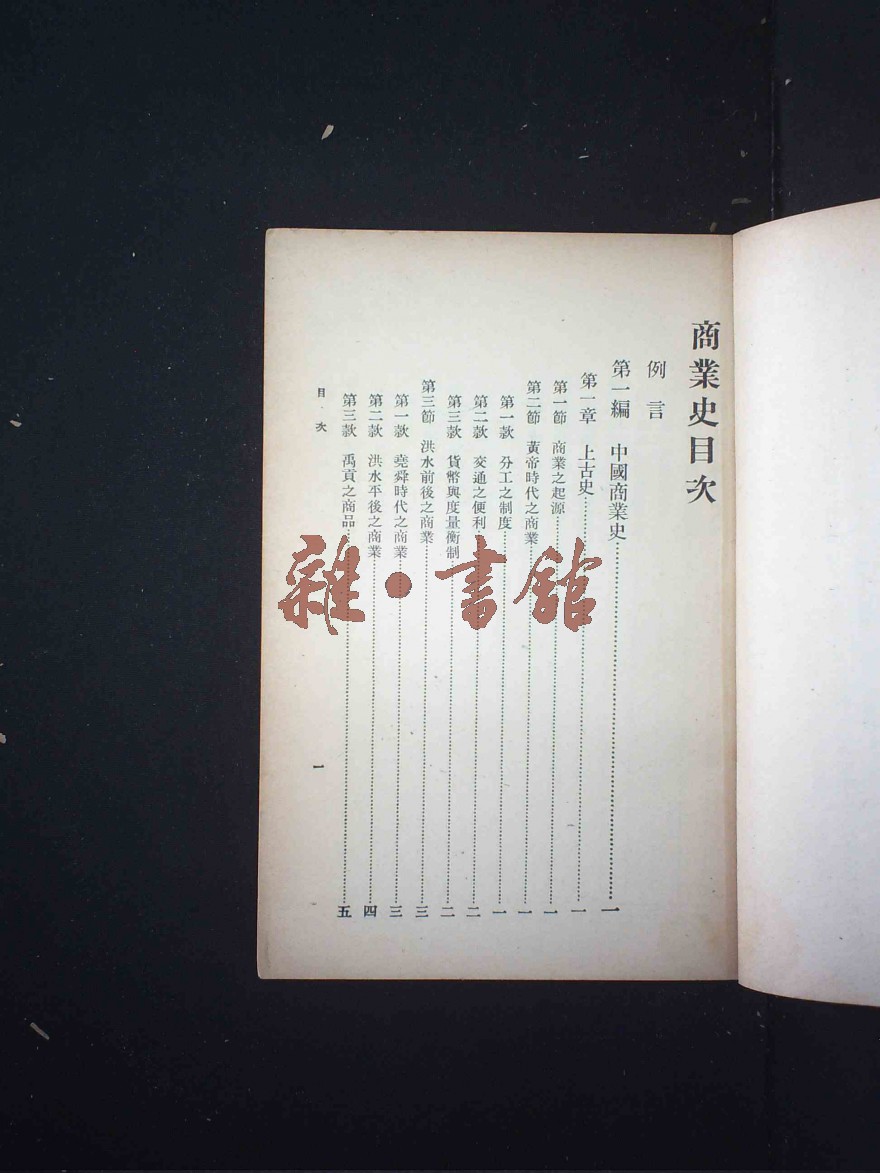 商業史目次
例言
第一編 中國商業史 一
第一章 上古史 一
第一節 商業之起源 一
第二節 黃帝時代之商業 一
第一款 分工之制度 一
第二款 交通之便利 二
第三款 貨幣與度量衡制 二
第三節 洪水前後之商業 三
第一款 堯舜時代之商業 三
第二款 洪水平後之商業 四
第三款 禹貢之商品 五
目次 一
雜·書館